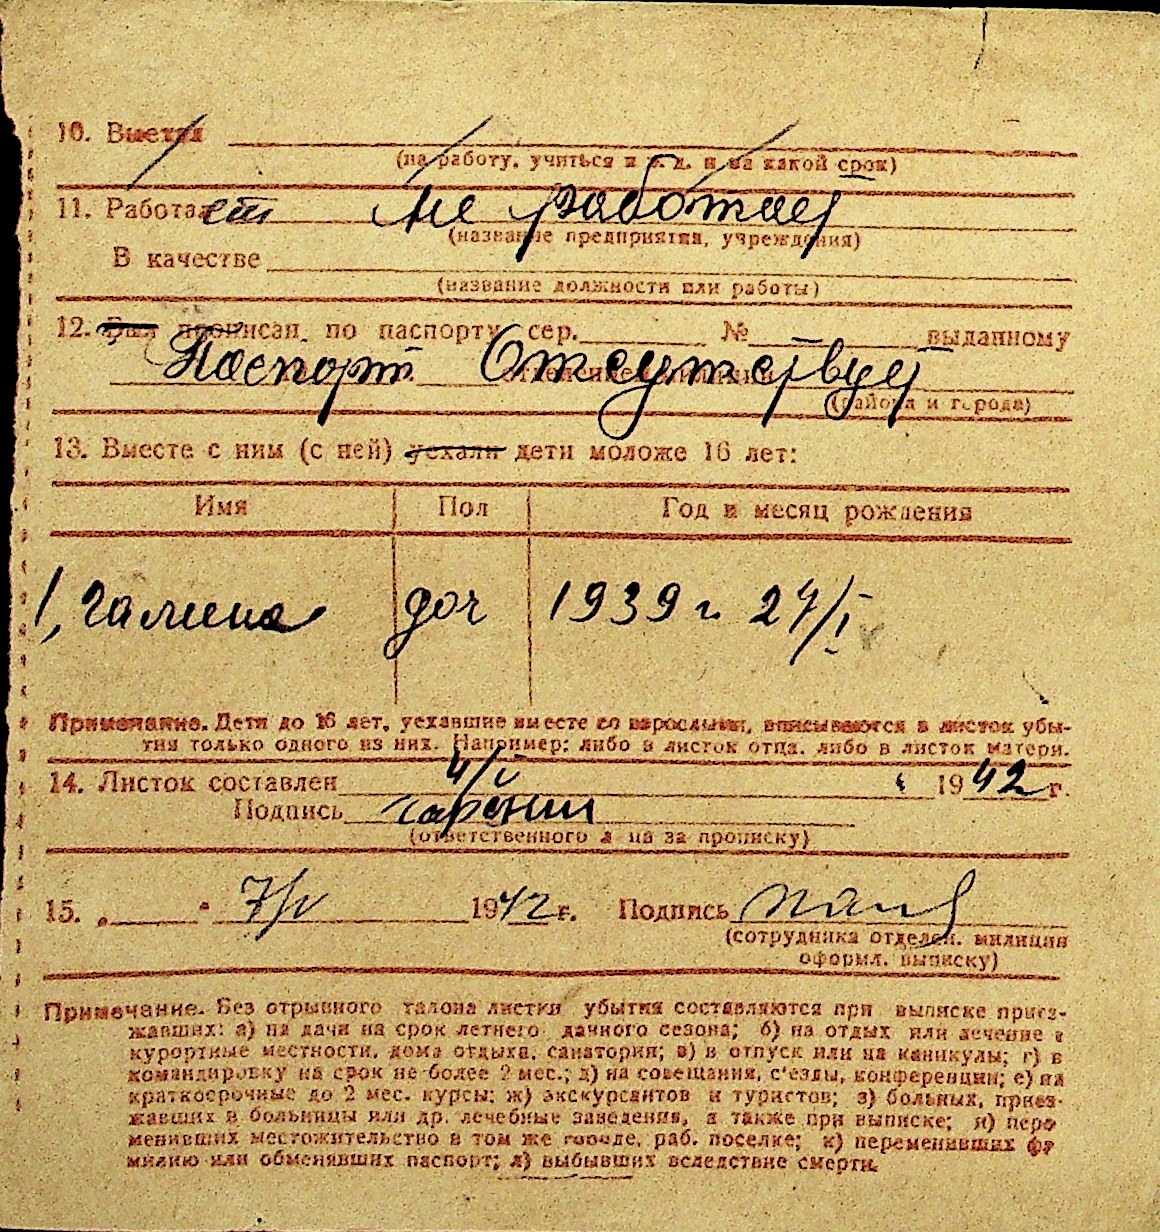 10. Выехал
(на работу, учиться и т. д. и на какой срок)
11. Работает не работает
(название предприятия, учреждения)
В качестве
(название должности или работы)
12. Был прописан по паспорту сер. № выданному
Паспорт Отсутствует
отделением милиции
(района и города)
13. Вместе с ним (с ней) уехали дети моложе 16 лет:
Имя Пол Год и месяц рождения
1, Галина доч 1939 г. 27/I
Примечание. Дети до 16 лет, уехавшие вместе со взрослыми, вписываются в листок убы-
тия только одного из них. Например: либо в листок отца, либо в листок матери.
14. Листок составлен 4/V 1942 г.
Подпись
(ответственного л-ца за прописку)
15. „ “ 7/V 1942 г. Подпись
(сотрудника отделен. милиции
оформл. выписку)
Примечание. Без отрывного талона листки убытия составляются при выписке приез-
жавших: а) на дачи на срок летнего дачного сезона; б) на отдых или лечение в
курортные местности, дома отдыха, санатории; в) в отпуск или на каникулы; г) в
командировку на срок не более 2 мес.; д) на совещания, с'езды, конференции; е) на
краткосрочные до 2 мес. курсы; ж) экскурсантов и туристов; з) больных, приез-
жавших в больницы или др. лечебные заведения, а также при выписке; и) пере
менивших местожительство в том же городе, раб. поселке; к) переменивших фа
милию или обменявших паспорт; л) выбывших вследствие смерти.